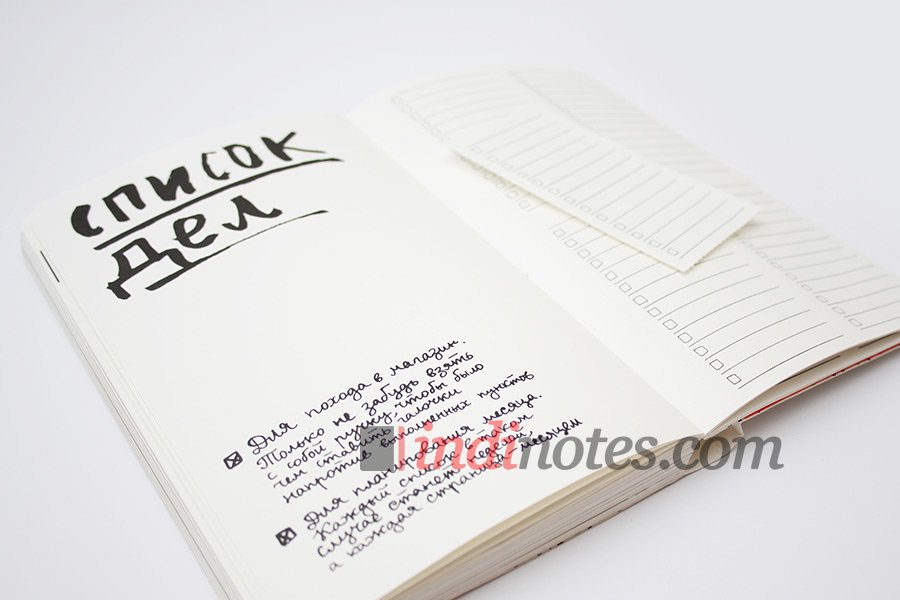 список
дел
Для похода в магазин.
Только не забудь взять
с собой ручку, чтобы было
чем ставить галочки
напротив выполненных пунктов
Для планирования месяца.
Каждый список в таком
случае станет неделей,
а каждая страница - месяцем
indinotes.com